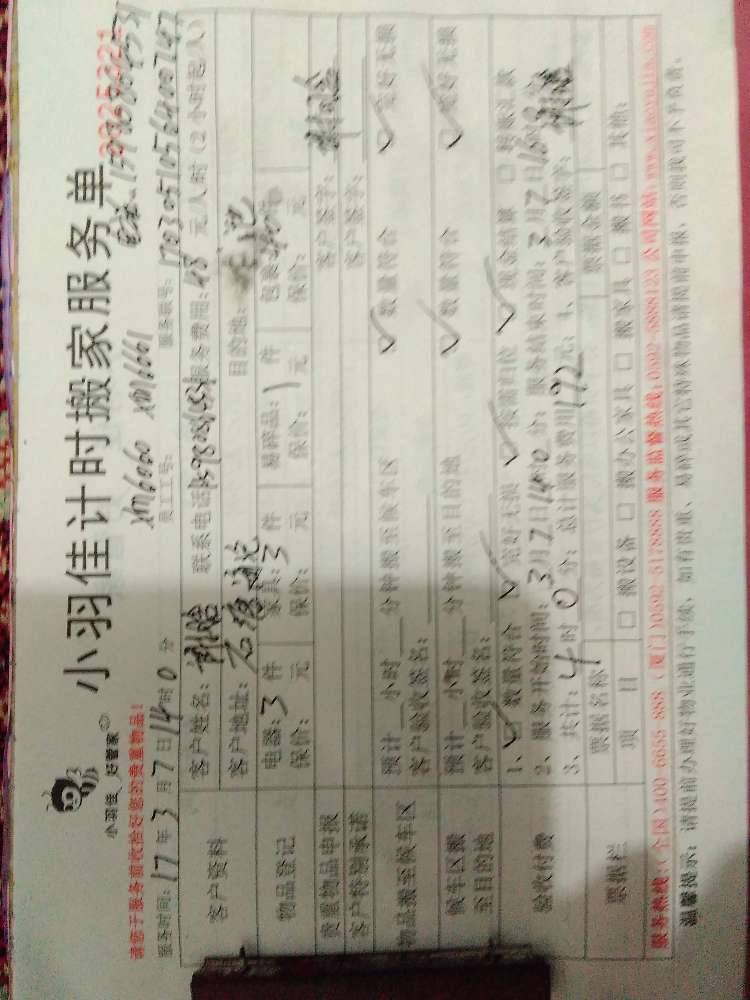 小羽佳计时搬家服务单
小羽佳,好管家
请您于服务前收拾好您的贵重物品!
服务时间:17年3月7日14时0分 员工工号: 服务账号:
客户资料 客户姓名: 联系电话 服务费用:48 元/人/时(2小时起/人)
客户地址: 目的地:
物品登记 电器:3件 家具:3件 易碎品:1件 包裹:
保价: 元 保价: 元 保价: 元 保价: 元
贵重物品申报 客户签字:
客户特别承诺 客户签字:
物品搬至候车区 预计__小时__分钟搬至候车区 数量符合 完好无损
客户验收签名:
候车区搬至目的地 预计__小时__分钟搬至目的地 数量符合 完好无损
客户验收签名:
验收付费 1、数量符合 完好无损 按需归位 现金结算 □ 转账汇款
2、服务开始时间:3月7日14时0分;服务结束时间:3月7日
3、共计:4时0分;总计服务费用192元;4、客户验收签字:
票据栏 票据名称 票据金额
项目 □ 搬设备 □ 搬办公家具 □ 搬家具 □ 搬书 □ 其他:
服务热线:(全国)400-6655-888 (厦门)0592-5178888 服务监督热线:0592-5888123 公司网站:www.xiaoyujia.com
温馨提示:请提前办理好物业进行手续,如有贵重、易碎或其它特殊物品请提前申报,否则我司不予负责。